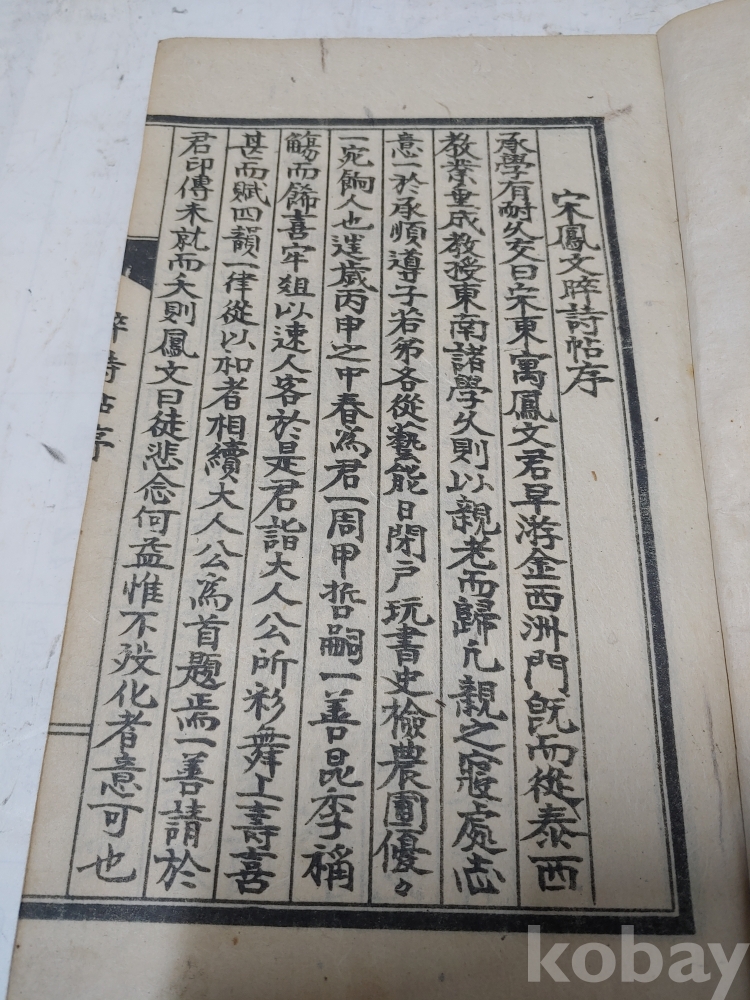 宋鳳文晬詩帖序
承學有耐久交曰宋東寓鳳文君早游金西洲門旣而從泰西
教業重成教授東南諸學久則以親老而歸凡親之寢處志
意一於承順導子若弟各從藝能日閉戶玩書史檢農圃優々
一宛餉人也逞歲丙申之中春爲君一周甲哲嗣一善昆季稱
觴而餙喜牢俎以速人客於是君詣大人公所彩舞上壽喜
甚而賦四韻一律從以和者相續大人公爲首題焉一善請於
君印傳未就而大則鳳文曰徒悲念何益惟不歿化者意可也
晬詩帖序
kobay